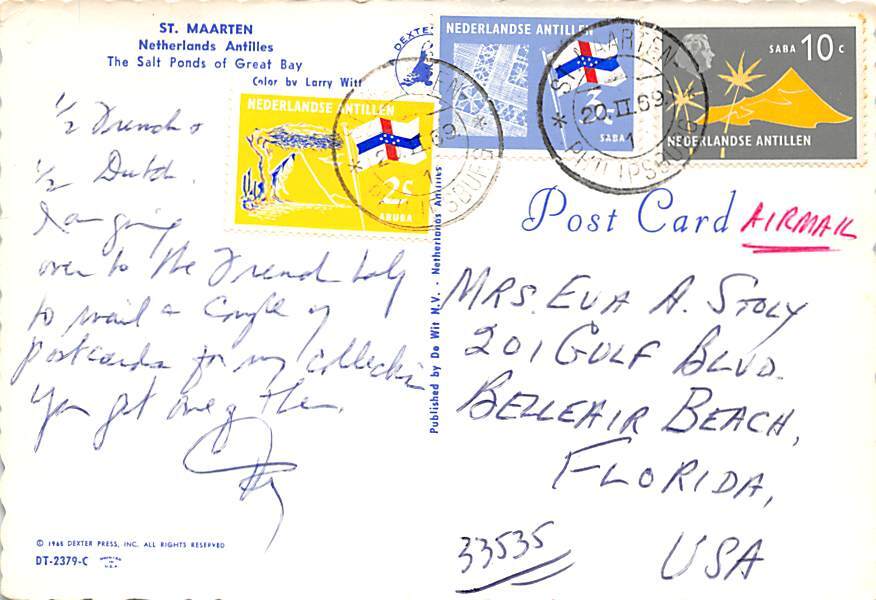 ST. MAARTEN
Netherlands Antilles
The Salt Ponds of Great Bay
Color by Larry Witt
DEXTE
1/2 French &
1/2 Dutch.
I am going
over to the French
to mail a couple of
postcards for my collection
You get one of them.
© 1968 DEXTER PRESS, INC. ALL RIGHTS RESERVED
DT-2379-C
Published by De Wit N.V. - Netherlands Antilles
NEDERLANDSE ANTILLEN
2c
ARUBA
NEDERLANDSE ANTILLEN
SABA
SABA 10 c
NEDERLANDSE ANTILLEN
ST. MAARTEN
20.II.69
1
PHILIPSBURG
Post Card
AIRMAIL
MRS. EVA A. STOLY
201 GULF BLVD.
BELLEAIR BEACH,
FLORIDA,
33535
USA